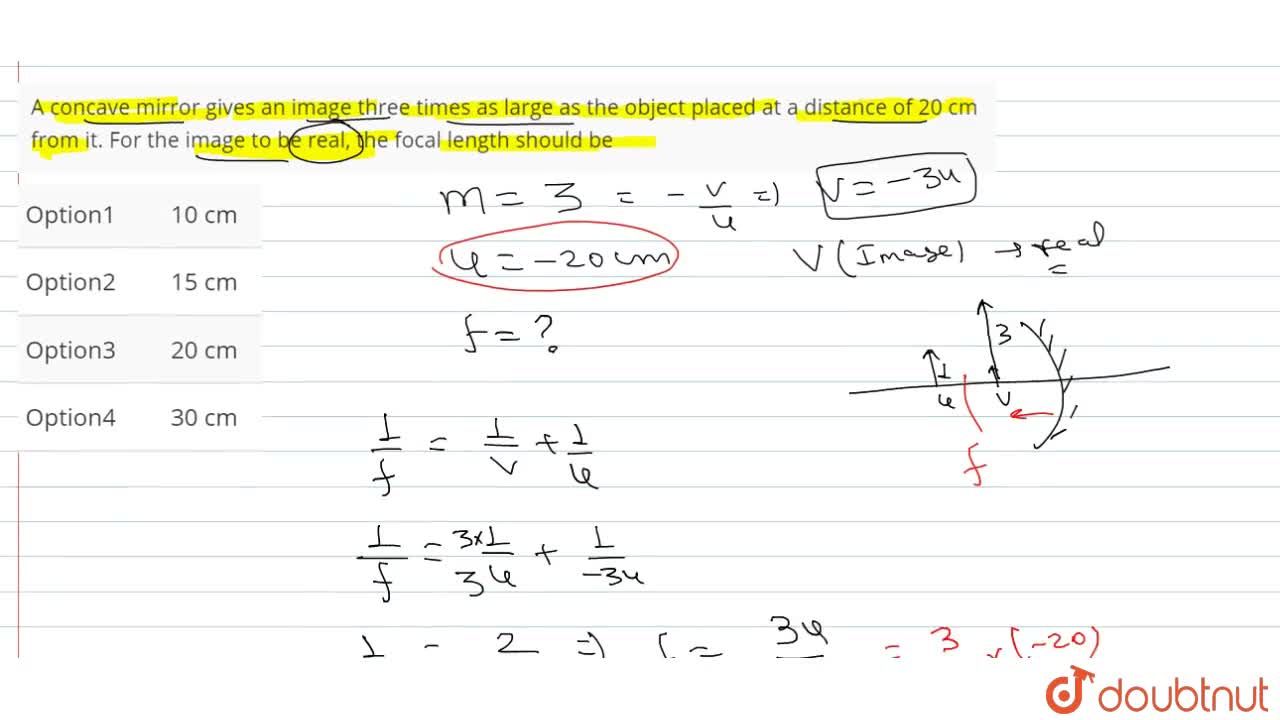 A concave mirror gives an image three times as large as the object placed at a distance of 20 cm
from it. For the image to be real, the focal length should be
Option1 10 cm
Option2 15 cm
Option3 20 cm
Option4 30 cm
m = 3 = - v/u => v = -3u
u = -20 cm
V (Image) → real
f = ?
3
1
u
v
f
1/f = 1/v + 1/u
1/f = 3×1/3u + 1/-3u
1 - 2 => f = 3u = 3 × (-20)
doubtnut